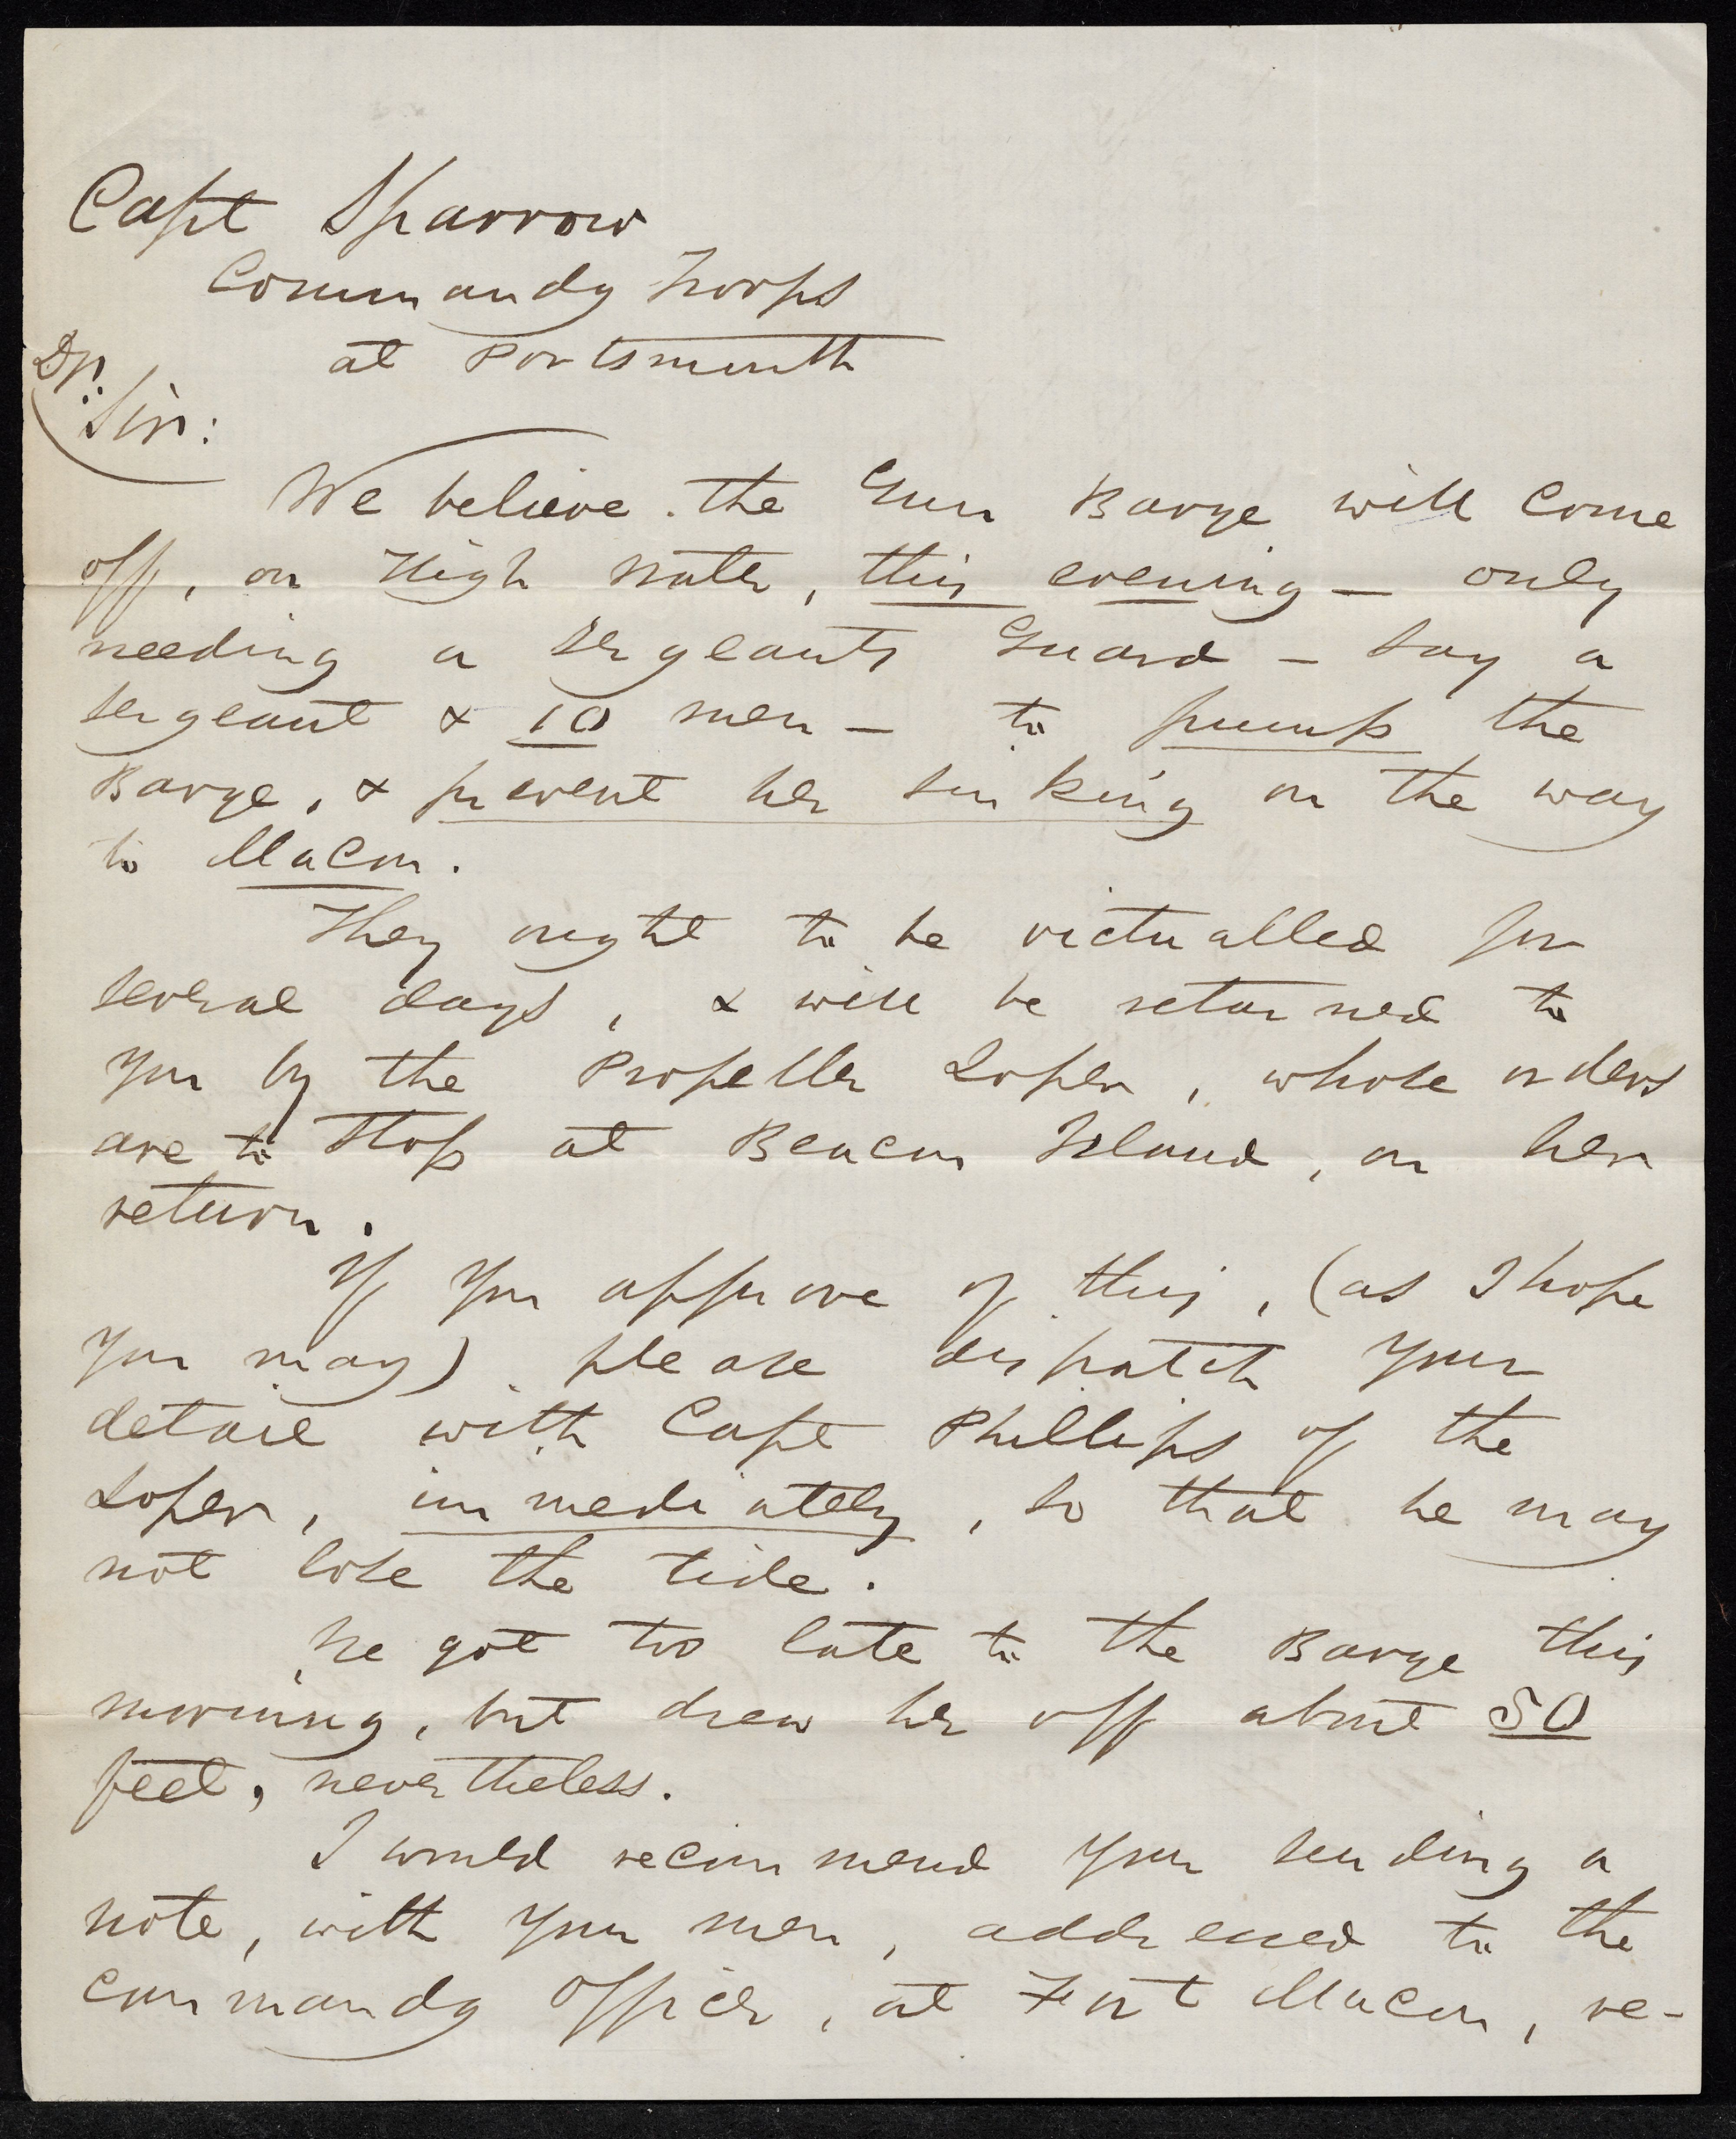 Capt Sparrow
Commandg Troops
at Portsmouth
Dr.
Sir:
We believe the Gun Barge will come
off, on High Water, this evening — only
needing a sergeants Guard — say a
sergeant & 10 men — to pump the
Barge, & prevent her sinking on the way
to Macon.
They ought to be victualled for
several days, & will be returned to
you by the Propeller Loper, whose orders
are to stop at Beacon Island, on her
return.
If you approve of this, (as I hope
you may) please dispatch your
detail with Capt Phillips of the
Loper, immediately, so that he may
not lose the tide.
He got too late to the Barge this
morning, but drew her off about 50
feet, nevertheless.
I would recommend your sending a
note, with your men, addressed to the
commandg officer, at Fort Macon, re-